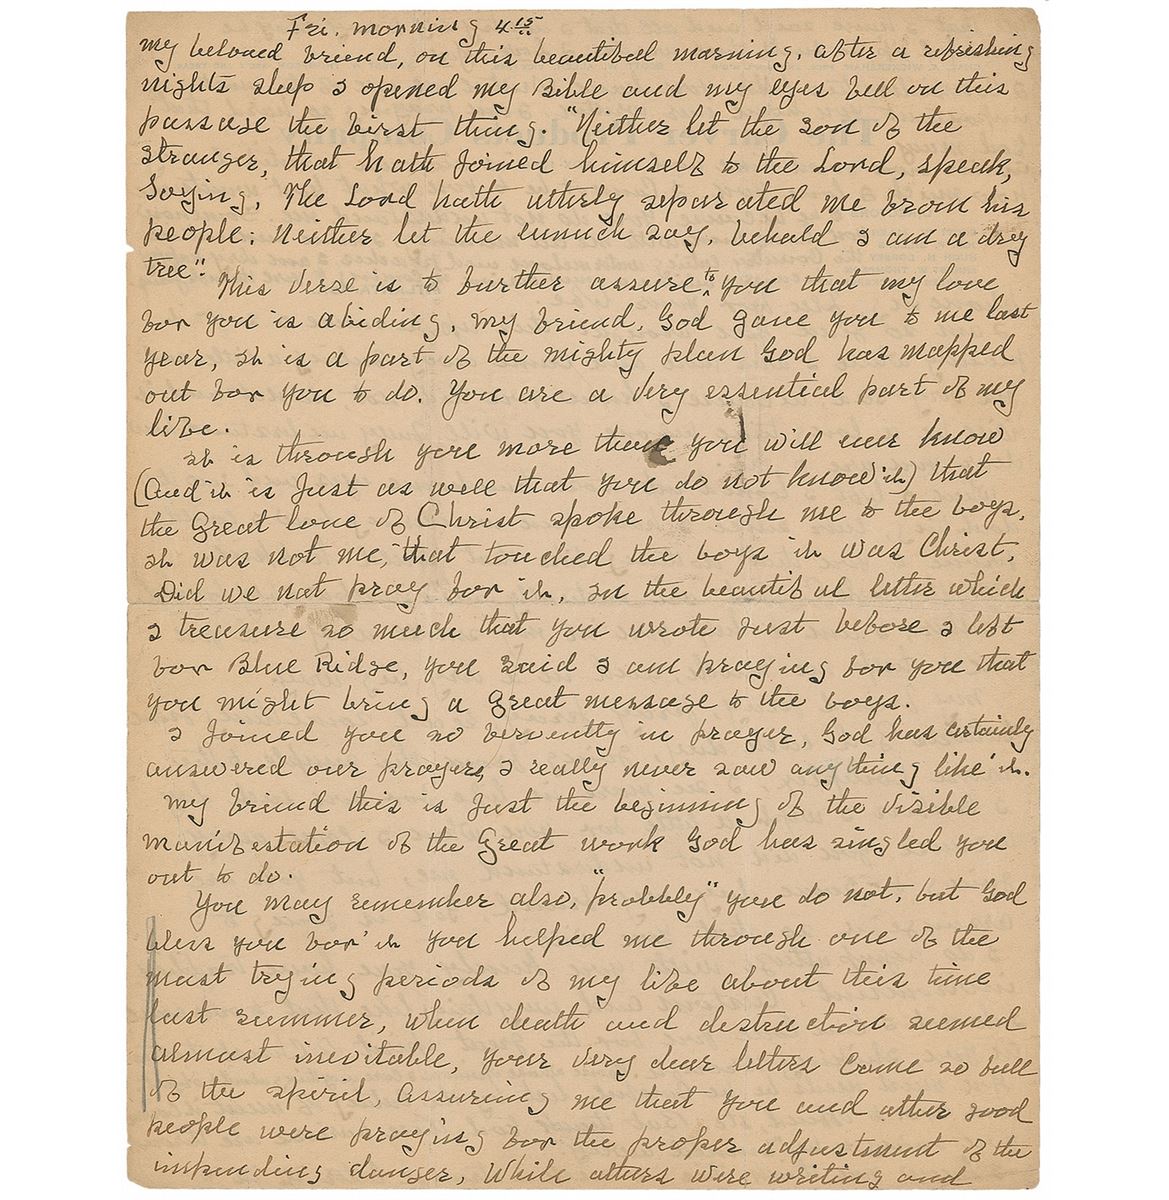 Fri. morning 4 15
My beloved friend, on this beautiful morning, after a refreshing
nights sleep I opened my Bible and my eyes fell on this
passage the first thing. "Neither let the son of the
stranger, that hath Joined himself to the Lord, speak,
Saying, The Lord hath utterly separated me from his
people: Neither let the eunuch say, behold I am a dry
tree".
This verse is to further assure to you that my love
for you is abiding, my friend, God gave you to me last
year, it is a part of the mighty plan God has mapped
out for you to do. You are a very essential part of my
life.
It is through you more than you will ever know
(And it is Just as well that you do not know it) that
the Great love of Christ spoke through me to the boys,
it was not me, that touched the boys it was Christ,
Did we not pray for it, in the beautiful letter which
I treasure so much that you wrote Just before I left
for Blue Ridge, you said I am praying for you that
you might bring a Great message to the boys.
I Joined you so fervently in prayer, God has certainly
answered our prayers, I really never saw anything like it.
My friend this is Just the beginning of the visible
manifestation of the Great work God has singled you
out to do.
You may remember also, "probbly" you do not, but God
bless you for it you helped me through one of the
most trying periods of my life about this time
last summer, when death and destruction seemed
almost inevitable, your very dear letters Came so full
of the spirit, assuring me that you and other good
people were praying for the proper adjustment of the
impending danger, While others were writing and